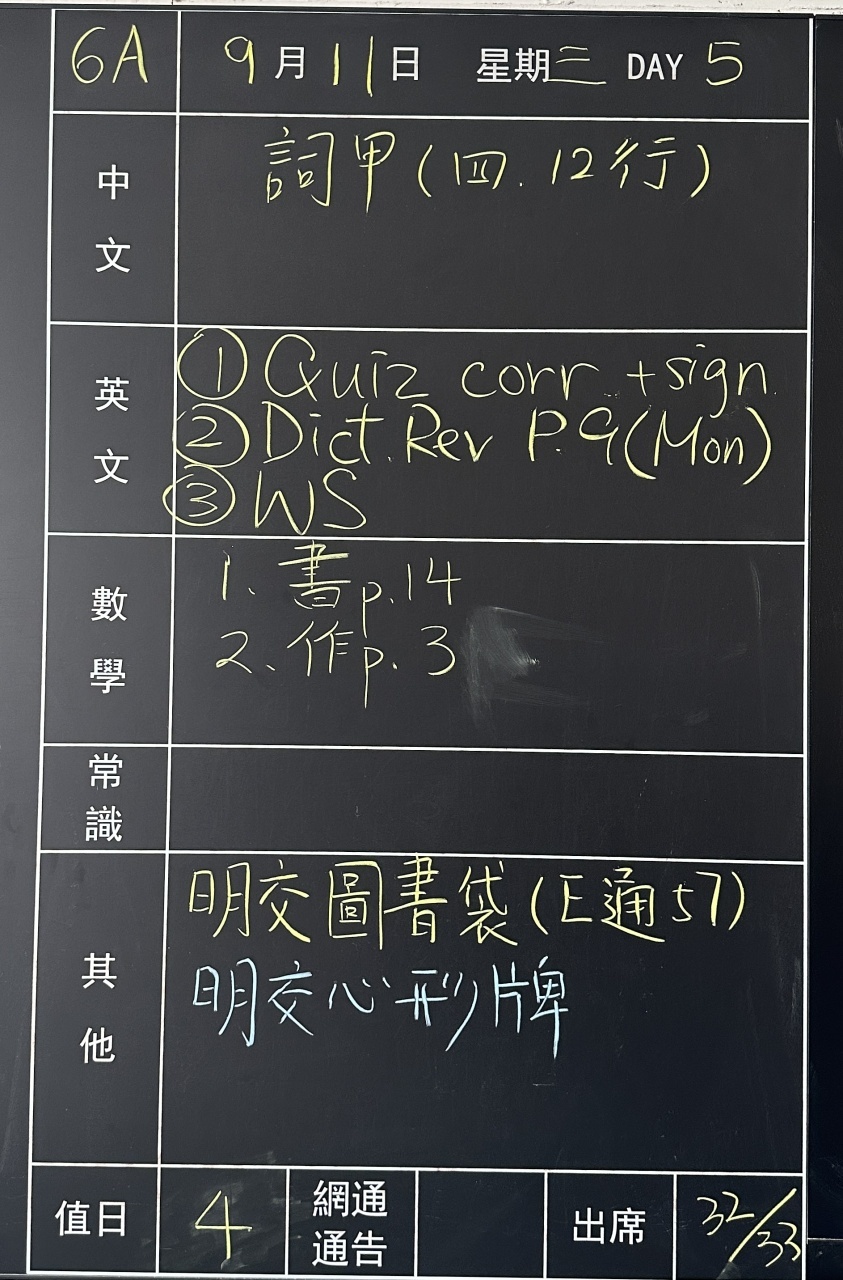 6A 9月11日 星期三 DAY 5
中文 詞甲(四.12行)
英文 ① Quiz corr +sign.
② Dict. Rev P.9(Mon)
③ WS
數學 1. 書p.14
2. 作p.3
常識
其他 明交圖書袋(E通57)
明交心形牌
值日 4 網通通告 出席 32/33